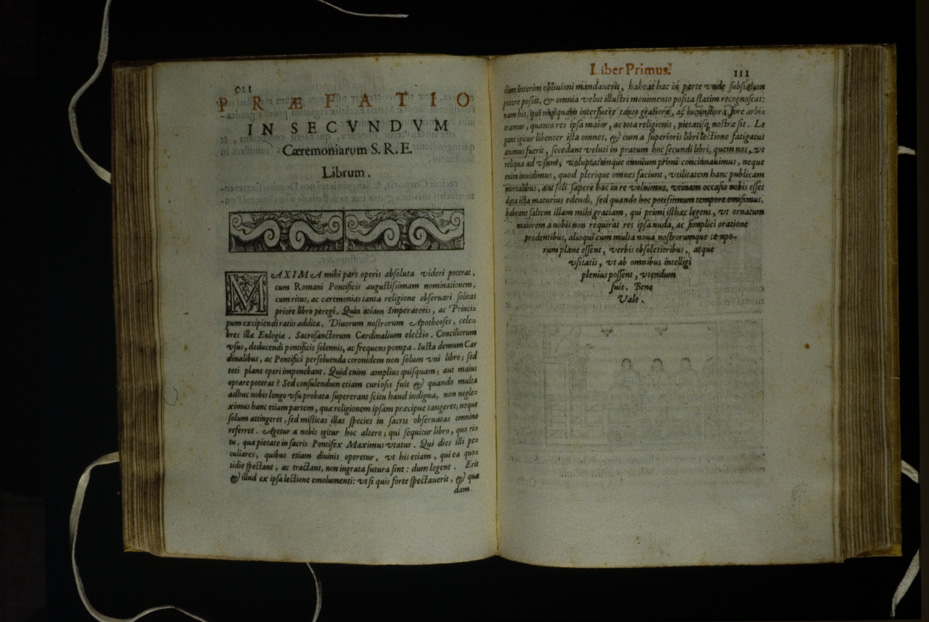 PRÆFATIO
IN SECVNDVM
Cæremoniarum S. R. E.
Librum.
MAXIMA mihi pars operis absoluta videri poterat,
cum Romani Pontificis augustissimam nominationem,
cum ritus, ac cæremonias tanta religione obseruari solitas
priore libro peregi. Quin etiam Imperatoris, ac Principum
pum excipiendi ratio addita. Diuorum nostrorum Apotheoses, cele
bres illæ Eulogiæ. Sacrosanctorum Cardinalium electio. Conciliorum
vsus, deducendi pontificis solennis, ac frequens pompa. Iusta demum Car
dinalibus, ac Pontifici persoluenda coronidem non solum vni libro; sed
toti plane operi imponebant. Quid enim amplius quisquam, aut maius
optare poterat? Sed consulendum etiam curiosis fuit & quando multa
adhuc nobis longo vsu probata supererant scitu haud indigna, non negle-
ximus hanc etiam partem, quæ religionem ipsam præcipue tangeret; neque
solum attingeret, sed misticas illas species in sacris obseruatas omnino
referret. Agetur a nobis igitur hoc altero, qui sequitur libro, quo ri-
tu, qua pietate in sacris Pontifex Maximus vtatur. Qui dies illi pe-
culiares, quibus etiam diuinis operetur, vt his etiam, qui ea quo-
tidie spectant, ac tractant, non ingrata futura sint: dum legent. Erit
& illud ex ipsa lectione emolumenti: vt si quis forte spectauerit, & quæ
dam
Liber Primus.
III
dam interim obliuioni mandauerit, habeat hac in parte vnde subsidium
petere possit, & omnia velut illustri monumento posita statim recognoscat:
nam his, qui nusquam interfuere tanto gratiora, ac iucundiora fore arbi-
tramur, quanto res ipsa maior, ac tota religionis, pietatisq; nostræ sit. Le
gant igitur libenter ista omnes, & cum a superioris libri lectione fatigatus
animus fuerit, secedant veluti in pratum hoc secundi libri, quem nos, vt
reliqua ad vsum, voluptatemque omnium primi concinnauimus, neque
enim inuidimus, quod plerique omnes faciunt, vtilitatem hanc publicam
mortalibus, aut soli sapere hac in re voluimus, vtinam occasio nobis esset
data ista maturius edendi, sed quando hoc potissimum tempore emisimus,
habeant saltem illam mihi gratiam, qui primi isthæc legens, vt ornatum
maiorem a nobis non requirat res ipsa nuda, ac simplici oratione
prodentibus, alioqui cum multa noua nostrorumque tempo-
rum plane essent, verbis obsoletioribus, atque
visitatis, vt ab omnibus intelligi
plenius possent, vtendum
fuit. Bene
Vale.